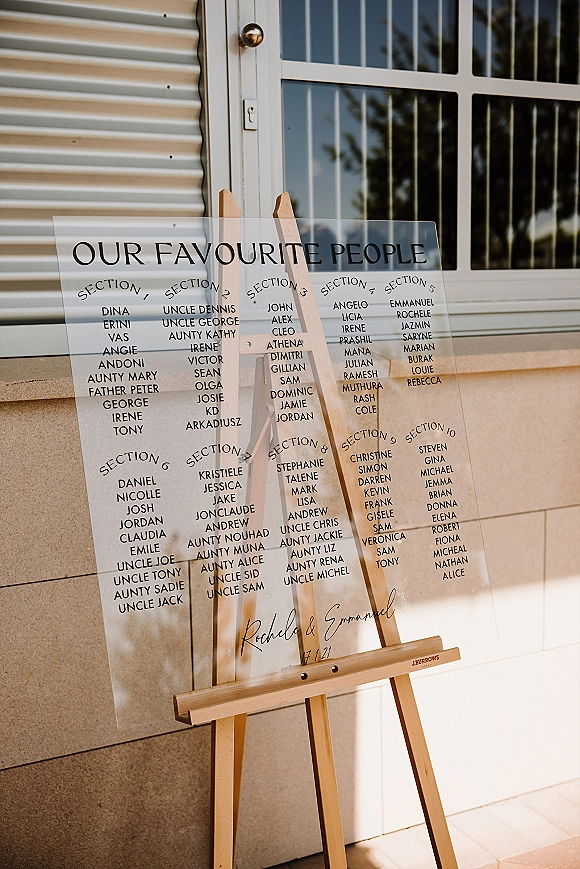 OUR FAVOURITE PEOPLE
SECTION 1
DINA
ERINI
VAS
ANGIE
ANDONI
AUNTY MARY
FATHER PETER
GEORGE
IRENE
TONY
SECTION 2
UNCLE DENNIS
UNCLE GEORGE
AUNTY KATHY
IRENE
VICTOR
SEAN
OLGA
JOSIE
KD
ARKADIUSZ
SECTION 3
JOHN
ALEX
CLEO
ATHENA
DIMITRI
GILLIAN
SAM
DOMINIC
JAMIE
JORDAN
SECTION 4
ANGELO
LICIA
IRENE
PRASHIL
MANA
JULIAN
RAMESH
MUTHURA
RASH
COLE
SECTION 5
EMMANUEL
ROCHELE
JAZMIN
SARYNE
MARIAN
BURAK
LOUIE
REBECCA
SECTION 6
DANIEL
NICOLLE
JOSH
JORDAN
CLAUDIA
EMILE
UNCLE JOE
UNCLE TONY
AUNTY SADIE
UNCLE JACK
SECTION 7
KRISTIELE
JESSICA
JAKE
JONCLAUDE
ANDREW
AUNTY NOUHAD
AUNTY MUNA
AUNTY ALICE
UNCLE SID
UNCLE SAM
SECTION 8
STEPHANIE
TALENE
MARK
LISA
ANDREW
UNCLE CHRIS
AUNTY JACKIE
AUNTY LIZ
AUNTY RENA
UNCLE MICHEL
SECTION 9
CHRISTINE
SIMON
DARREN
KEVIN
FRANK
GISELE
SAM
VERONICA
SAM
TONY
SECTION 10
STEVEN
GINA
MICHAEL
JEMMA
BRIAN
DONNA
ELENA
ROBERT
FIONA
MICHEAL
NATHAN
ALICE
Rochele & Emmanuel
7.1.21